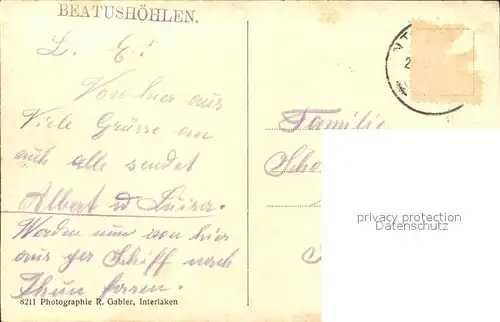 BEATUSHÖHLEN.
L. E!
Von hier aus
Viele Grüsse an
auch alle sendet
Albert u Luisa.
Werden nun von hier
aus per Schiff nach
Thun faren.
8211 Photographie R. Gabler, Interlaken
Familie
privacy protection
Copyright notice